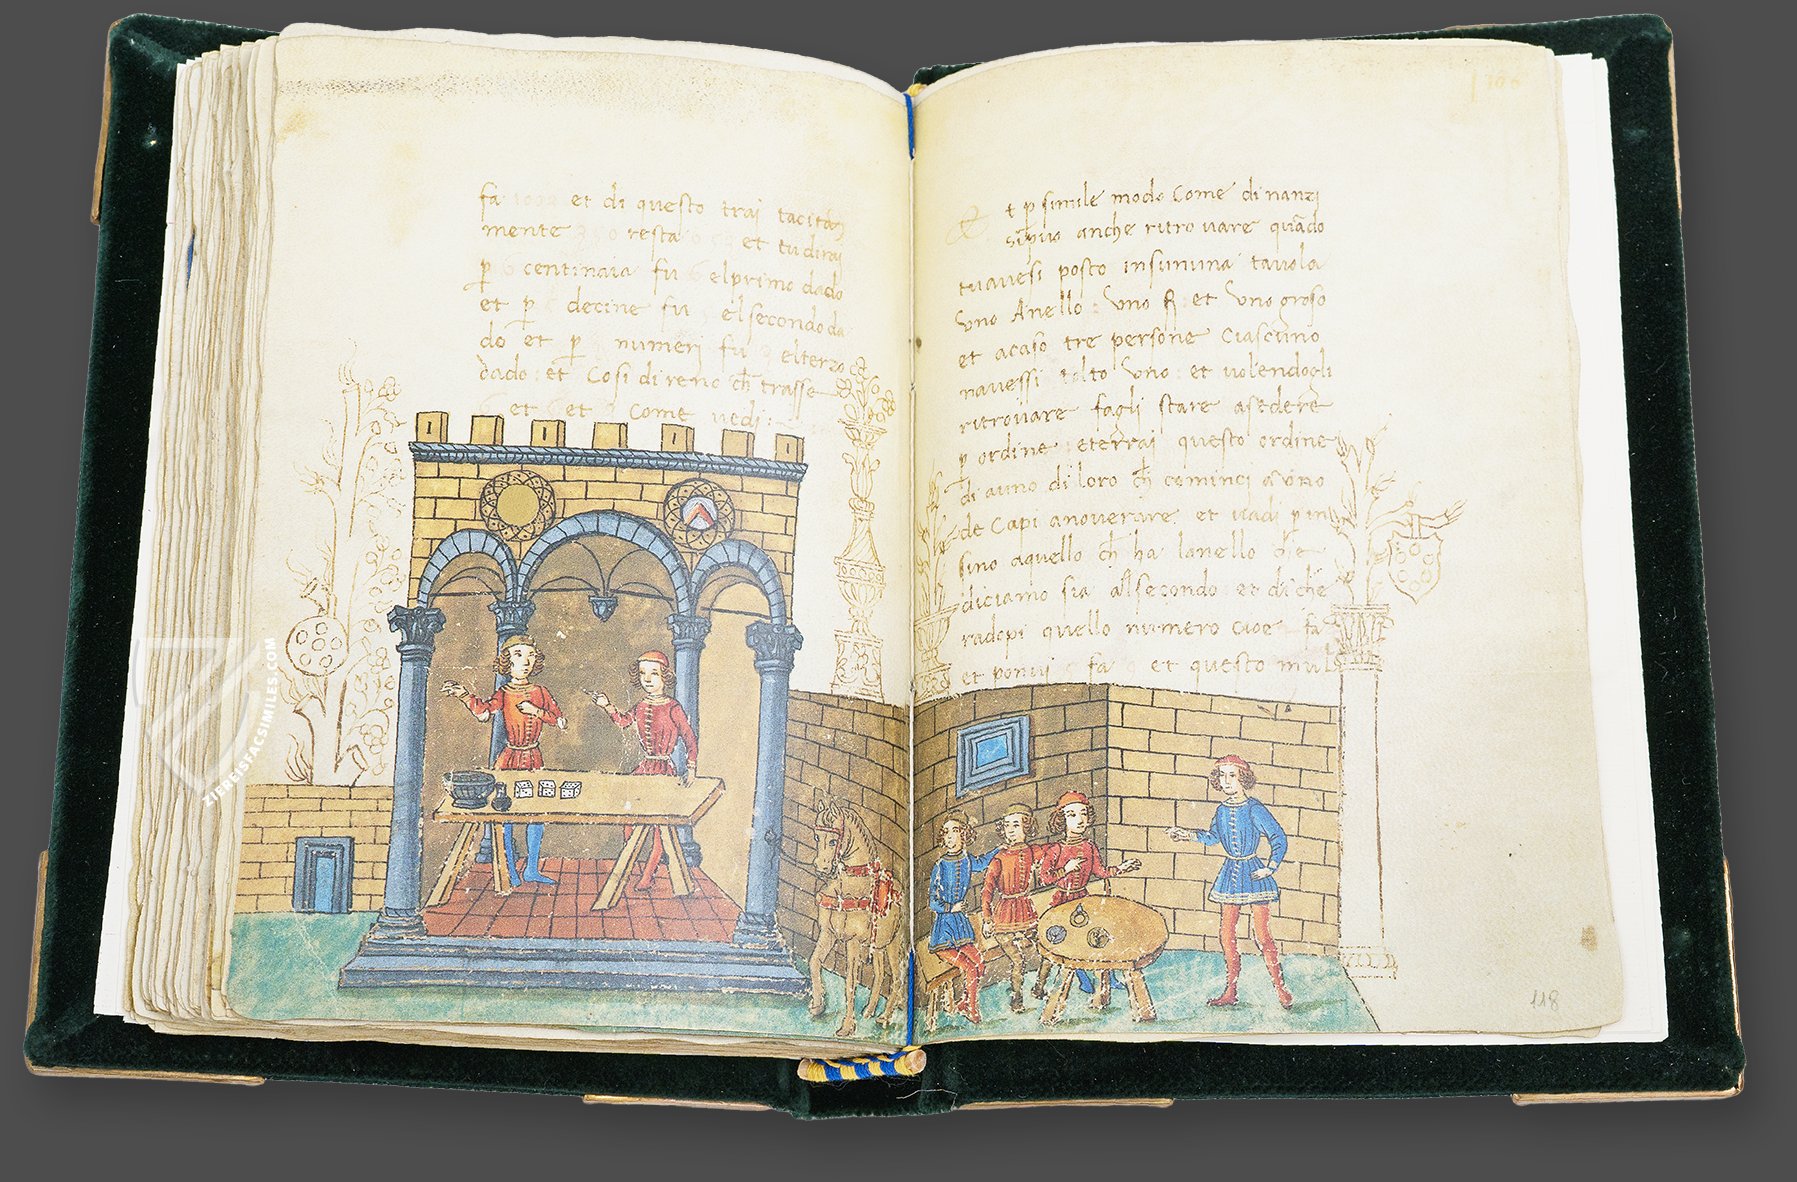 fa et di questo trai tacita
mente resta et tu dirai
p centinaia fu el primo dado
et p decine fu el secondo da
do et p numeri fu el terzo
dado et Cosi direno ch trasse
et et come vedi
t p simile modo Come di nanzi
si puo anche ritrovare quādo
tu avesi posto insununa tavola
uno Anello uno et uno groso
et acaso tre persone Ciascuno
navessi tolto uno et volendogli
ritrovare fagli stare asedere
p ordine et terrai questo ordine
di auno di loro ch cominci a uno
de Capi anoverare et vadi p in
sino aquello ch ha lanello ch e
diciamo sia al secondo et di che
radopi quello numero cioe fa
et ponvi fa et questo mul
106
118
ZIEREISFACSIMILES.COM